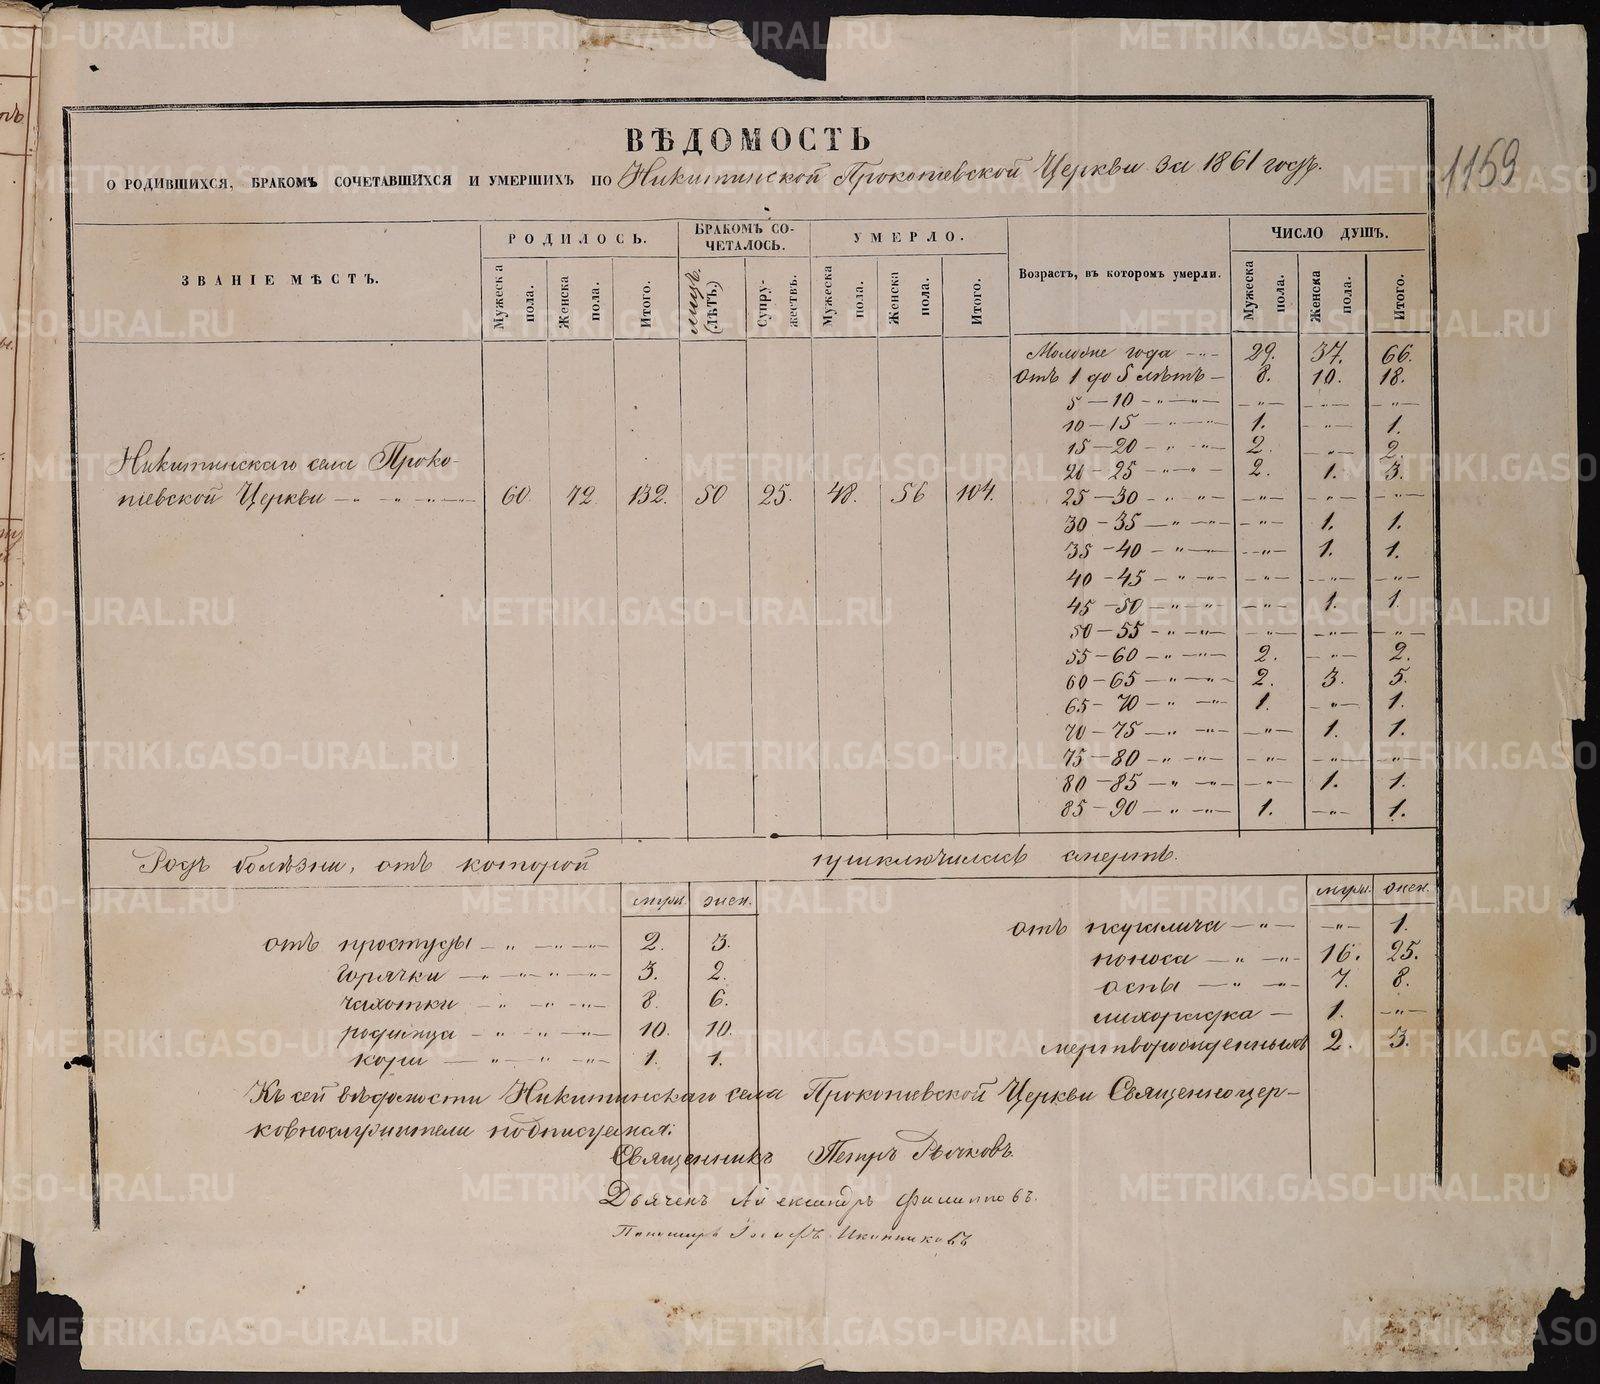 ВѢДОМОСТЬ
О РОДИВШИХСЯ, БРАКОМЪ СОЧЕТАВШИХСЯ И УМЕРШИХЪ ПО Никитинской Прокопіевской Церкви за 1861 годъ.
1159
ЗВАНІЕ МѢСТЪ.
РОДИЛОСЬ.
Мужеска пола.
Женска пола.
Итого.
БРАКОМЪ СО-
ЧЕТАЛОСЬ.
лицъ.
(лѣтъ,)
Супру-
жествъ.
УМЕРЛО.
Мужеска пола.
Женска пола.
Итого.
Возрастъ, въ которомъ умерли.
ЧИСЛО ДУШЪ.
Мужеска пола.
Женска пола.
Итого.
Никитинскаго села Проко-
піевской Церкви — „ „ „ — 60 72 132. 50 25. 48. 56 104.
Моложе года — „ — 29. 37. 66.
Отъ 1 до 5 лѣтъ — 8. 10. 18.
5 — 10 — „ — „ — — „ — — „ — — „ —
10 — 15 — „ — „ — 1. — „ — 1.
15 — 20 — „ — „ — 2. — „ — 2.
20 — 25 — „ — „ — 2. 1. 3.
25 — 30 — „ — „ — — „ — — „ — — „ —
30 — 35 — „ — „ — — „ — 1. 1.
35 — 40 — „ — „ — — „ — 1. 1.
40 — 45 — „ — „ — — „ — — „ — — „ —
45 — 50 — „ — „ — — „ — 1. 1.
50 — 55 — „ — „ — — „ — — „ — — „ —
55 — 60 — „ — „ — 2. — „ — 2.
60 — 65 — „ — „ — 2. 3. 5.
65 — 70 — „ — „ — 1. — „ — 1.
70 — 75 — „ — „ — — „ — 1. 1.
75 — 80 — „ — „ — — „ — — „ — — „ —
80 — 85 — „ — „ — — „ — 1. 1.
85 — 90 — „ — „ — 1. — „ — 1.
Родъ болѣзни, отъ которой приключилась смерть.
муж. жен.
отъ простуды — „ — „ — 2. 3.
горячки — „ — „ — 3. 2.
чахотки — „ — „ — 8. 6.
родимца — „ — „ — 10. 10.
кори — „ — „ — 1. 1.
муж. жен.
отъ паралича — „ — — „ — 1.
поноса — „ — „ — 16. 25.
оспы — „ — „ — 7. 8.
лихорадка — 1. — „ —
мертворожденныхъ 2. 3.
Къ сей вѣдомости Никитинскаго села Прокопіевской Церкви Священноцер-
ковнослужители подписуемся:
Священникъ Петръ Рычковъ.
Дьячекъ Александръ Филипповъ.
Пономарь Іосифъ Иконниковъ
METRIKI.GASO-URAL.RU